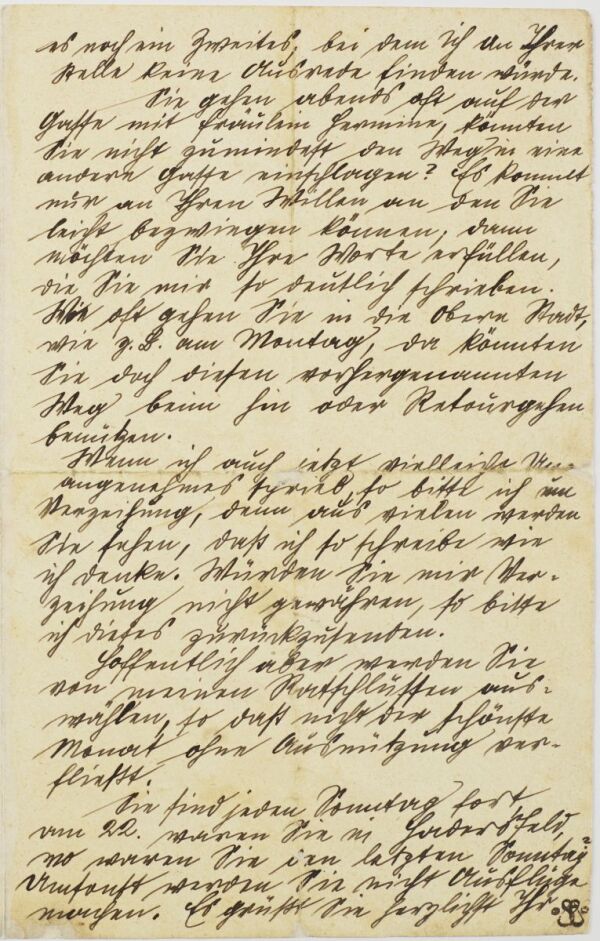 es noch ein Zweites, bei dem Ich an Ihrer
Stelle keine Ausrede finden würde.
Sie gehen abends oft auf der
Gasse mit Fräulein Hermine, könnten
Sie nicht zumindest den Weg in eine
andere Gasse einschlagen? Es kommt
nur an Ihren Willen an den Sie
leicht bezwingen können; dann
möchten Sie Ihre Worte erfüllen,
die Sie mir so deutlich schrieben.
Wie oft gehen Sie in die Obere Stadt,
wie z. B. am Montag, da könnten
Sie doch diesen vorhergenannten
Weg beim hin oder Retourgehen
benützen.
Wenn ich auch jetzt vielleicht Un-
angenehmes schrieb, so bitte ich um
Verzeihung, denn aus vielen werden
Sie sehen, daß ich so schreibe wie
ich denke. Würden Sie mir Ver-
zeihung nicht gewähren, so bitte
ich dieses zurückzusenden.
Hoffentlich aber werden Sie
von meinen Ratschlüssen aus-
wählen, so daß nicht der schönste
Monat ohne Ausnützung ver-
fließt.
Sie sind jeden Sonntag fort,
am 22. waren Sie in Hadersfeld,
wo waren Sie den letzten Sonntag?
Umsonst werden Sie nicht Ausflüge
machen. Es grüßt Sie herzlichst Ihr